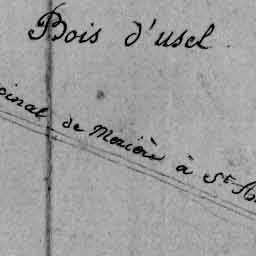 Bois d'usel
cinal de Merière à St